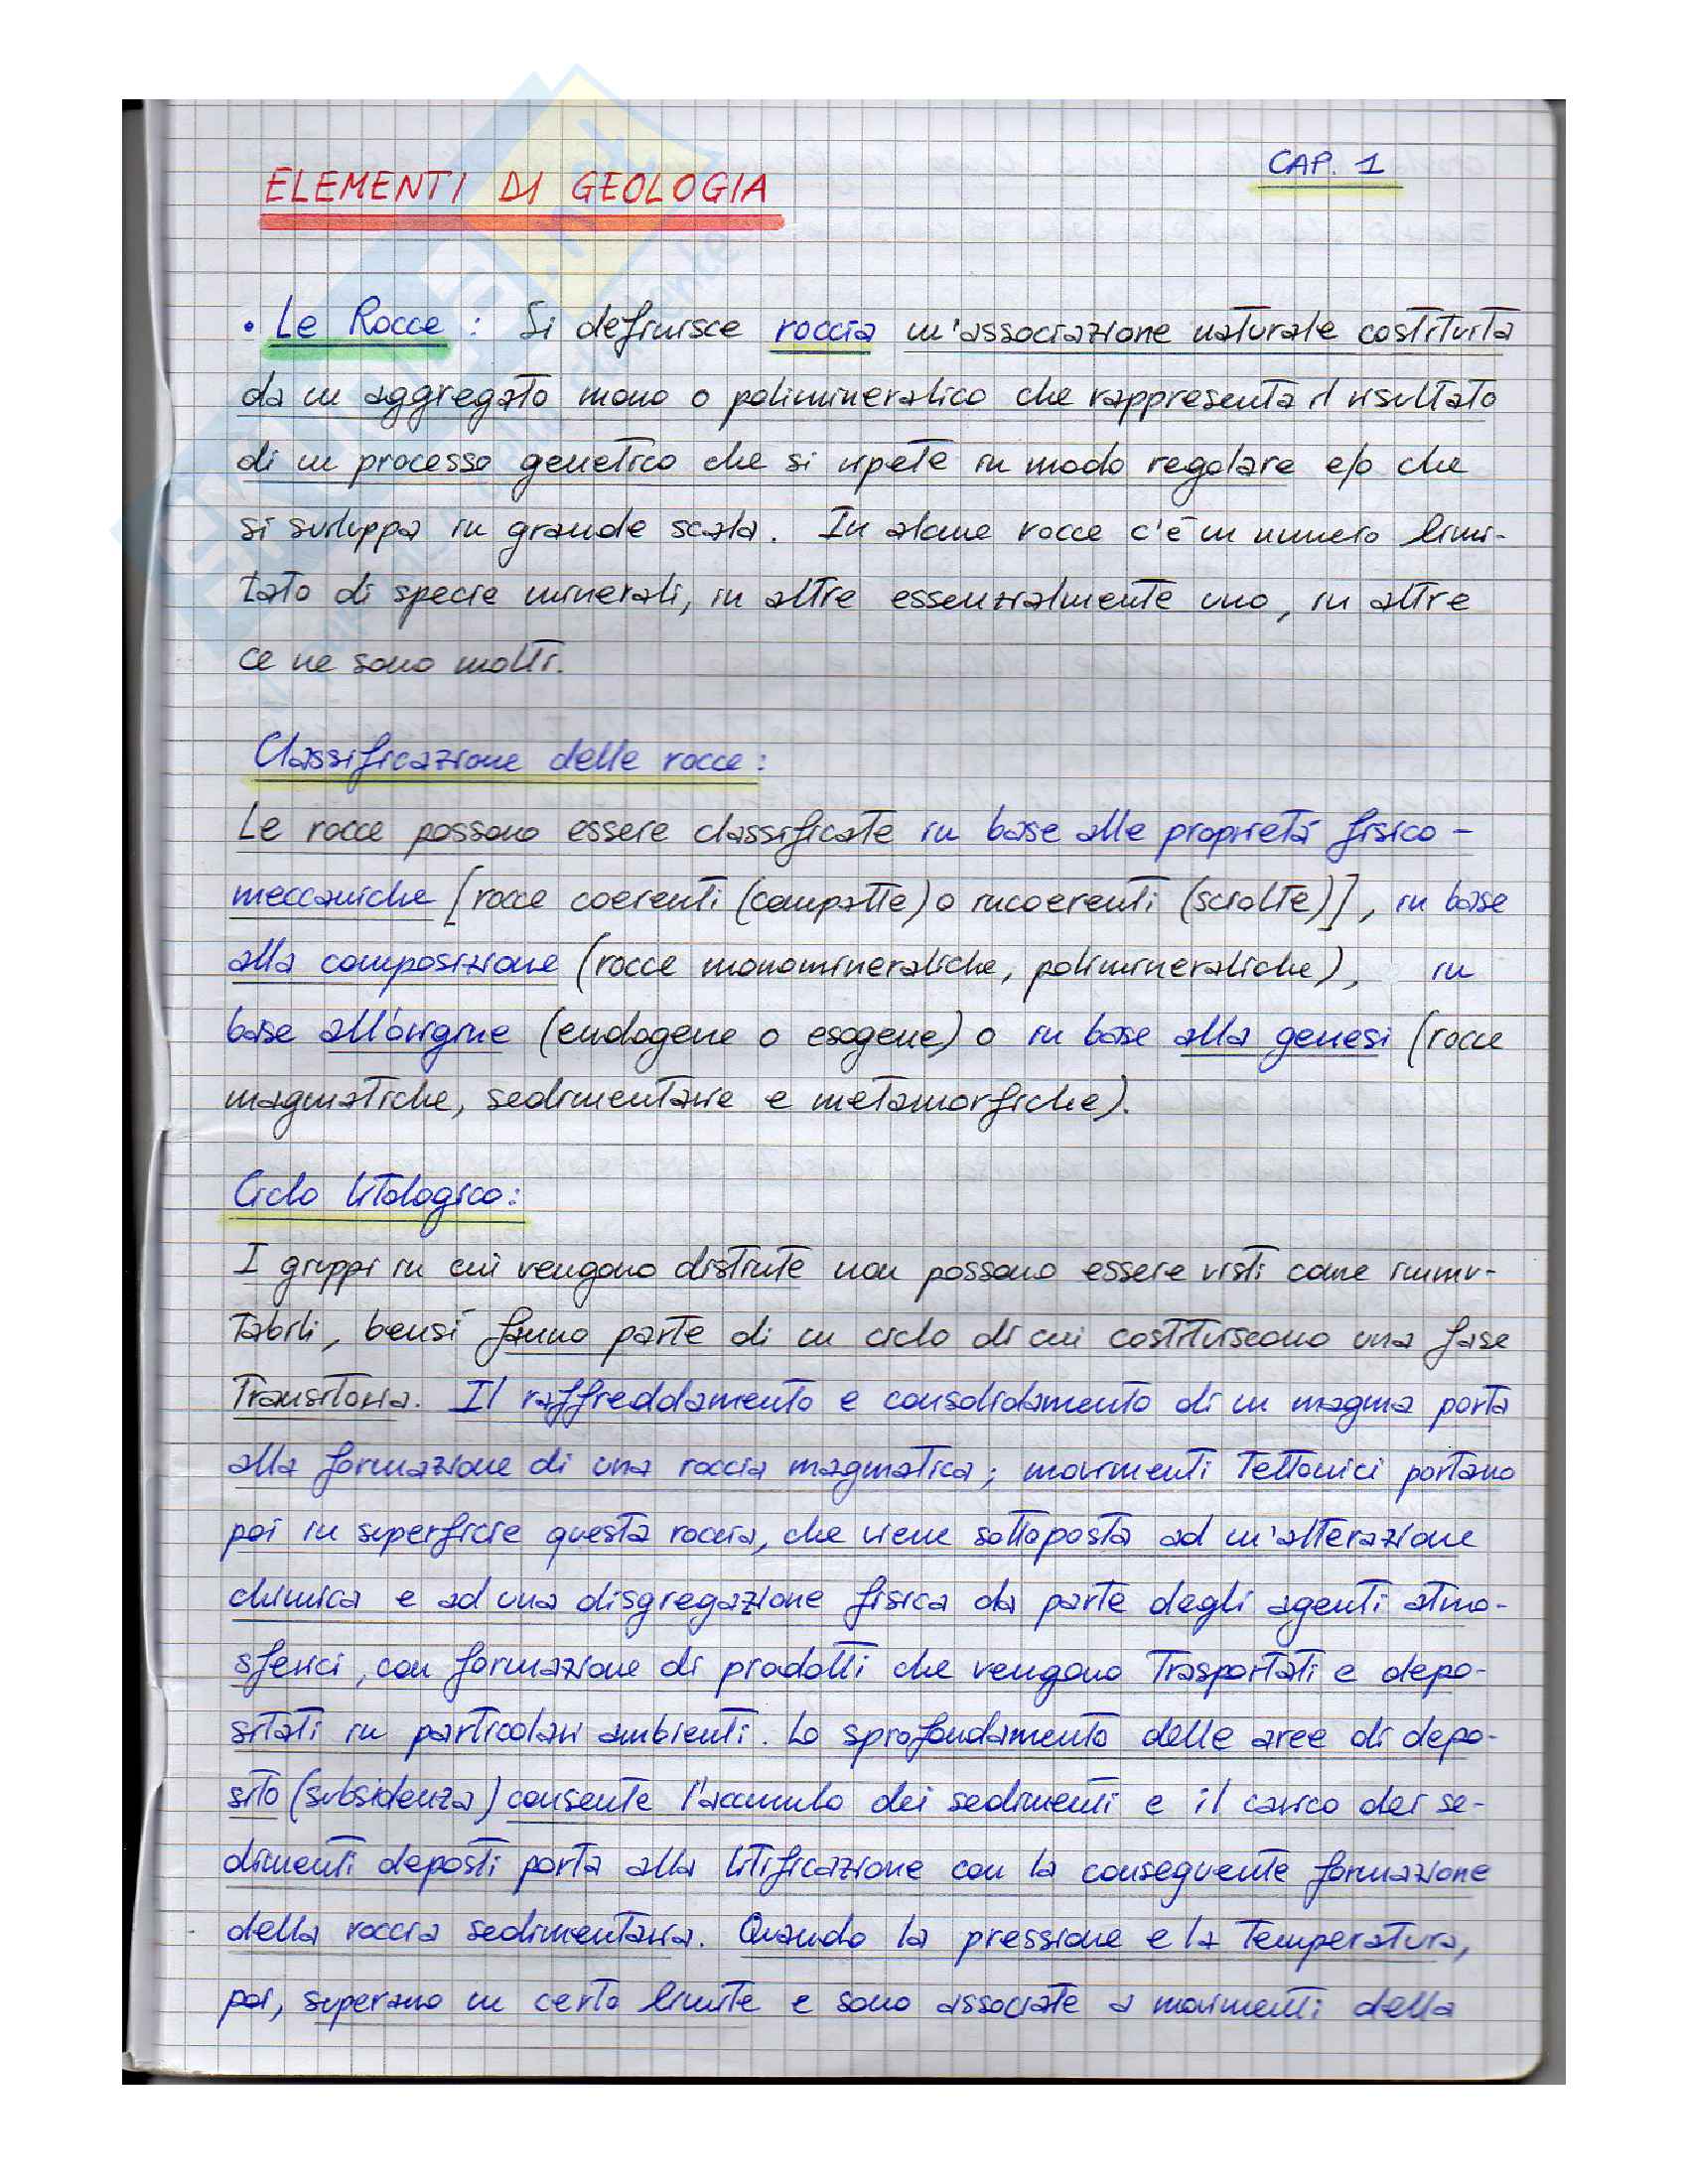 CAP. 1
ELEMENTI DI GEOLOGIA
• Le Rocce : Si definisce roccia un'associazione naturale costituita
da un aggregato mono o polimineralico che rappresenta il risultato
di un processo genetico che si ripete in modo regolare e/o che
si sviluppa in grande scala. In alcune rocce c'è un numero limi-
tato di specie minerali, in altre essenzialmente uno, in altre
ce ne sono molti.
Classificazione delle rocce :
Le rocce possono essere classificate in base alle proprietà fisico-
meccaniche [rocce coerenti (compatte) o incoerenti (sciolte)], in base
alla composizione (rocce monomineraliche, polimineraliche), in
base all'origine (endogene o esogene) o in base alla genesi (rocce
magmatiche, sedimentarie e metamorfiche).
Ciclo litologico :
I gruppi in cui vengono distinte non possono essere visti come immu-
tabili, bensì fanno parte di un ciclo di cui costituiscono una fase
transitoria. Il raffreddamento e consolidamento di un magma porta
alla formazione di una roccia magmatica; movimenti tettonici portano
poi in superficie questa roccia, che viene sottoposta ad un'alterazione
chimica e ad una disgregazione fisica da parte degli agenti atmo-
sferici, con formazione di prodotti che vengono trasportati e depo-
sitati in particolari ambienti. Lo sprofondamento delle aree di depo-
sito (subsidenza) consente l'accumulo dei sedimenti e il carico dei se-
dimenti deposti porta alla litificazione con la conseguente formazione
della roccia sedimentaria. Quando la pressione e la temperatura,
poi, superano un certo limite e sono associate a movimenti della